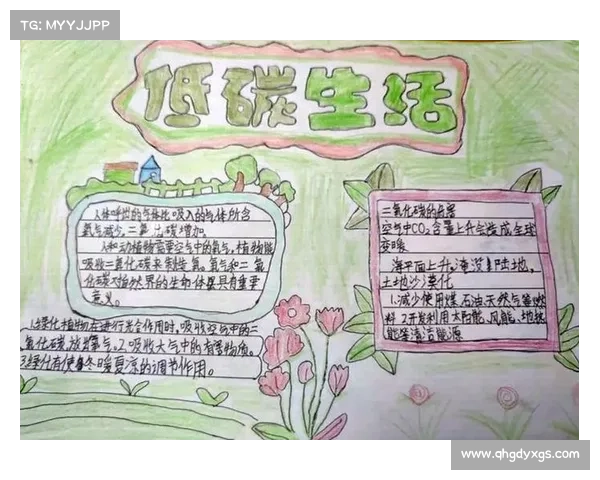 TG: MYYJJPP
低碳生活
人体呼出的气体比吸入的气体所含
氧气减少,二氧化碳增加
人和动植物需要空气中的氧气,植物能
吸收二氧化碳来制造氧。氧气和二氧
化碳对自然界的生物体都具有重要
意义。
1.绿化植物在进行光合作用时,吸收空气中的二
氧化碳,放出氧气。2.吸收大气中的有害物质。
3.绿化有使冬暖夏凉的调节作用。
二氧化碳的危害
空气中CO2含量上升会造成全球
变暖
海平面上升,淹没陆地,
土地沙漠化
1.减少使用煤、石油、天然气等燃
料 2.开发利用太阳能、风能、地热
能等清洁能源
www.qhgdyxgs.com